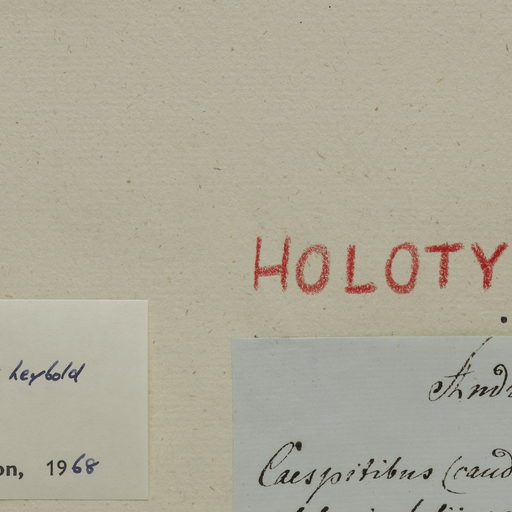 HOLOTY
Leybold
on, 1968
Andr
Caespitibus (caud